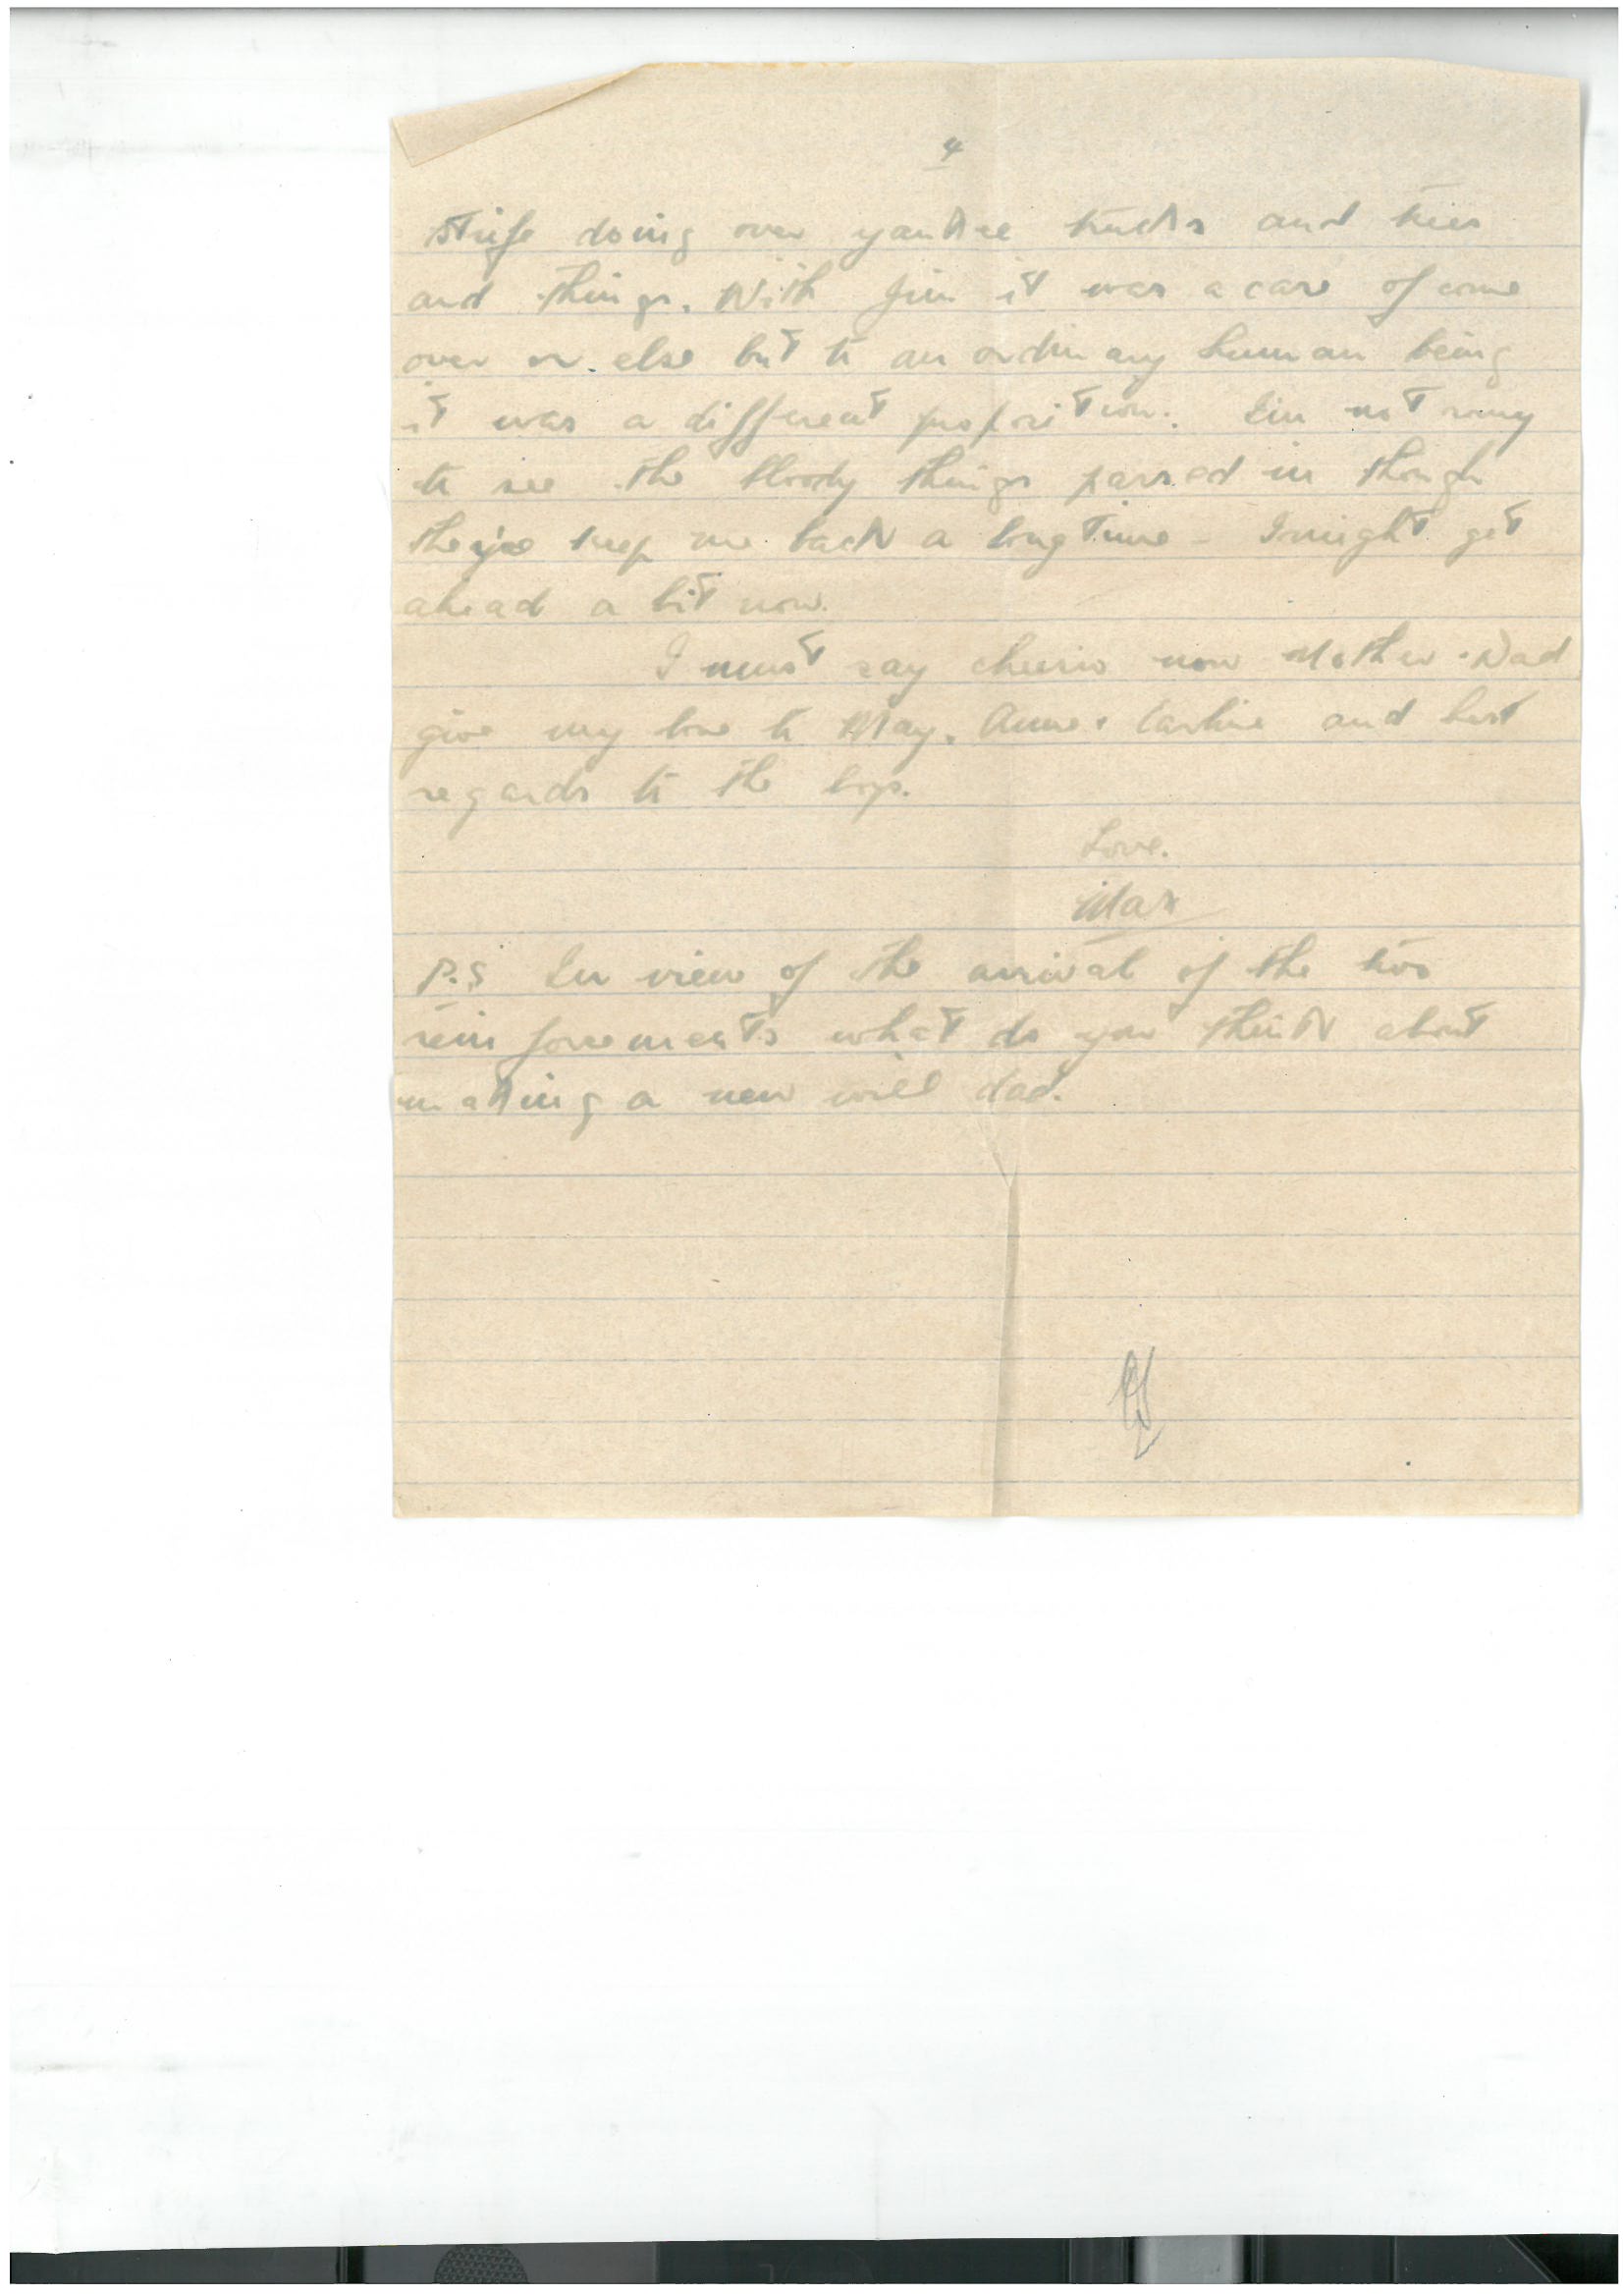 4
strife doing over yankee trucks and trees
and things. With Jim it was a case of come
over or else but to an ordinary human being
it was a different proposition. I'm not sorry
to see the bloody things passed in though
they've keep me back a long time - I might get
ahead a bit now.
I must say cheerio now Mother & Dad
give my love to May, Anne & and best
regards to the boys.
Love.
Max
P.S In view of the arrival of the two
reinforcements what do you think about
making a new will dad.